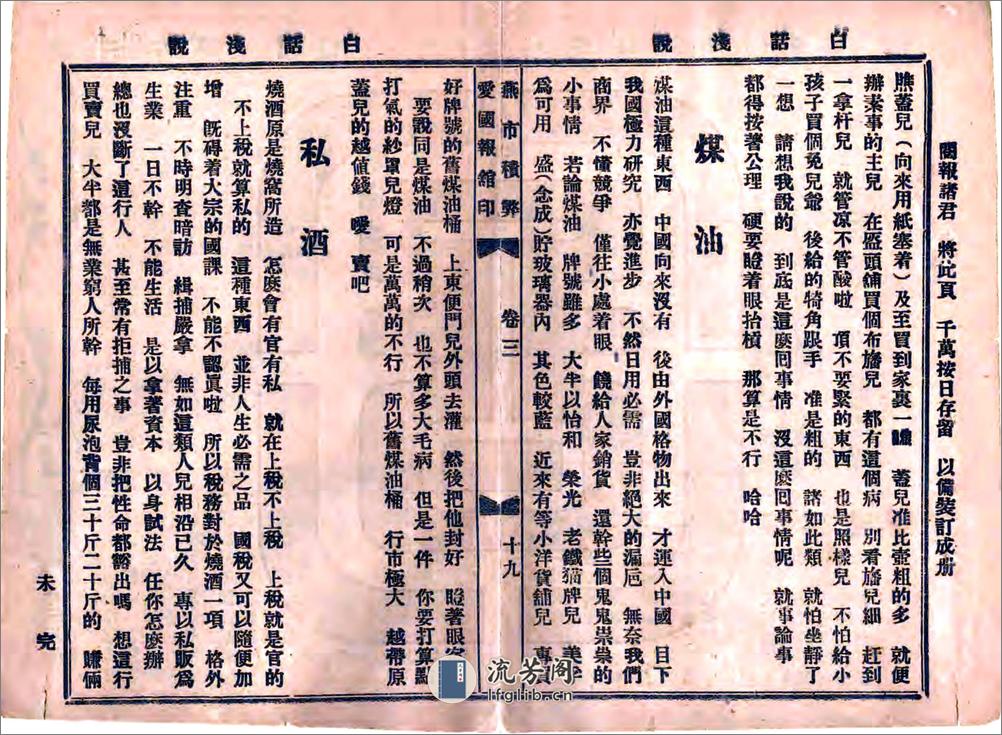 白話淺說
白話淺說
閱報諸君　將此頁　千萬按日存留　以備裝訂成册
蓋兒（向來用紙塞着）及至買到家裏一瞧　蓋兒准比壺粗的多　就便
辦喪事的主兒　在槓頭舖買個布旛兒　都有這個病　別看旛兒細　趕到
一拿杆兒　就管凉不管酸啦　頂不要緊的東西　也是照樣兒　不怕給小
孩子買個兔兒爺　後給的犄角跟手　准是粗的　諸如此類　就怕坐靜了
一想　請想我說的　到底是這麽回事情　沒這麽回事情呢　就事論事
都得按著公理　硬要瞪着眼抬槓　那算是不行　哈哈
煤油
煤油這種東西　中國向來沒有　後由外國格物出來　才運入中國　目下
我國極力研究　亦覺進步　不然日用必需　豈非絕大的漏巵　無奈我們
商界　不懂競爭　僅往小處着眼　饒給人家銷貨　還幹些個鬼鬼祟祟的
小事情　若論煤油　牌號雖多　大半以怡和　榮光　老鐵猫牌兒　美孚
爲可用　盛（念成）貯玻璃器內　其色較藍　近來有等小洋貨舖兒　專買
燕市積弊　卷三　十九
愛國報館印
好牌號的舊煤油桶　上東便門兒外頭去灌　然後把他封好　瞪著眼
要說同是煤油　不過稍次　也不算多大毛病　但是一件　你要打算點
打氣的紗罩兒燈　可是萬萬的不行　所以舊煤油桶　行市極大　越帶原
蓋兒的越値錢　噯　賣吧
私酒
燒酒原是燒窩所造　怎麽會有官有私　就在上稅不上稅　上稅就是官的
不上稅就算私的　這種東西　並非人生必需之品　國稅又可以隨便加
增　旣碍着大宗的國課　不能不認眞啦　所以稅務對於燒酒一項　格外
注重　不時明查暗訪　緝捕嚴拿　無如這類人兒相沿已久　專以私販爲
生業　一日不幹　不能生活　是以拿著資本　以身試法　任你怎麽辦
總也沒斷了這行人　甚至常有拒捕之事　豈非把性命都豁出嗎　想這行
買賣兒　大半都是無業窮人所幹　每用尿泡背個三十斤二十斤的　賺倆
未完
流芳阁
lfglib.cn